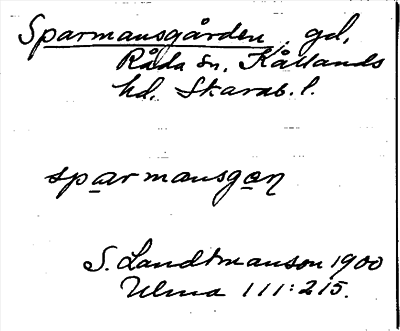 Sparmansgården, gd,
Råda sn, Kållands
hd, Skarab. l.
sparmansgaɳ
S. Landtmanson 1900
Ulma 111:215.